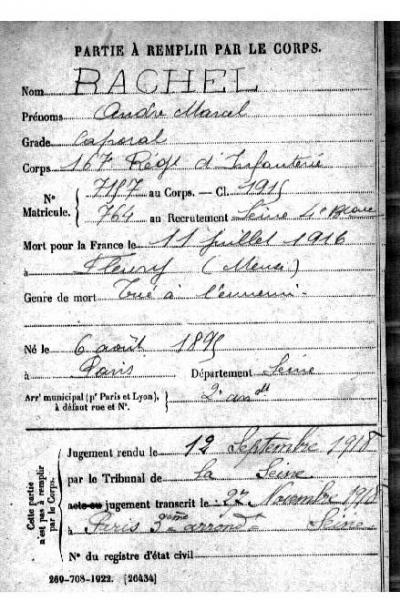 PARTIE À REMPLIR PAR LE CORPS.
Nom RACHEL
Prénoms André Marcel
Grade Caporal
Corps 167 Régt d'Infanterie
N° Matricule. { 7187 au Corps. — Cl. 1915
764 au Recrutement Seine 4e Bau
Mort pour la France le 11 juillet 1916
à Fleury (Meuse)
Genre de mort Tué à l'ennemi
Né le 6 août 1895
à Paris Département Seine
Arrt municipal (pr Paris et Lyon), à défaut rue et N°. } 2e
Cette partie n'est pas à remplir par le Corps.
Jugement rendu le 12 Septembre 1918
par le Tribunal de la Seine
acte ou jugement transcrit le 27 Novembre 1918
à Paris arrondt Seine
N° du registre d'état civil
269-708-1922. [26434]